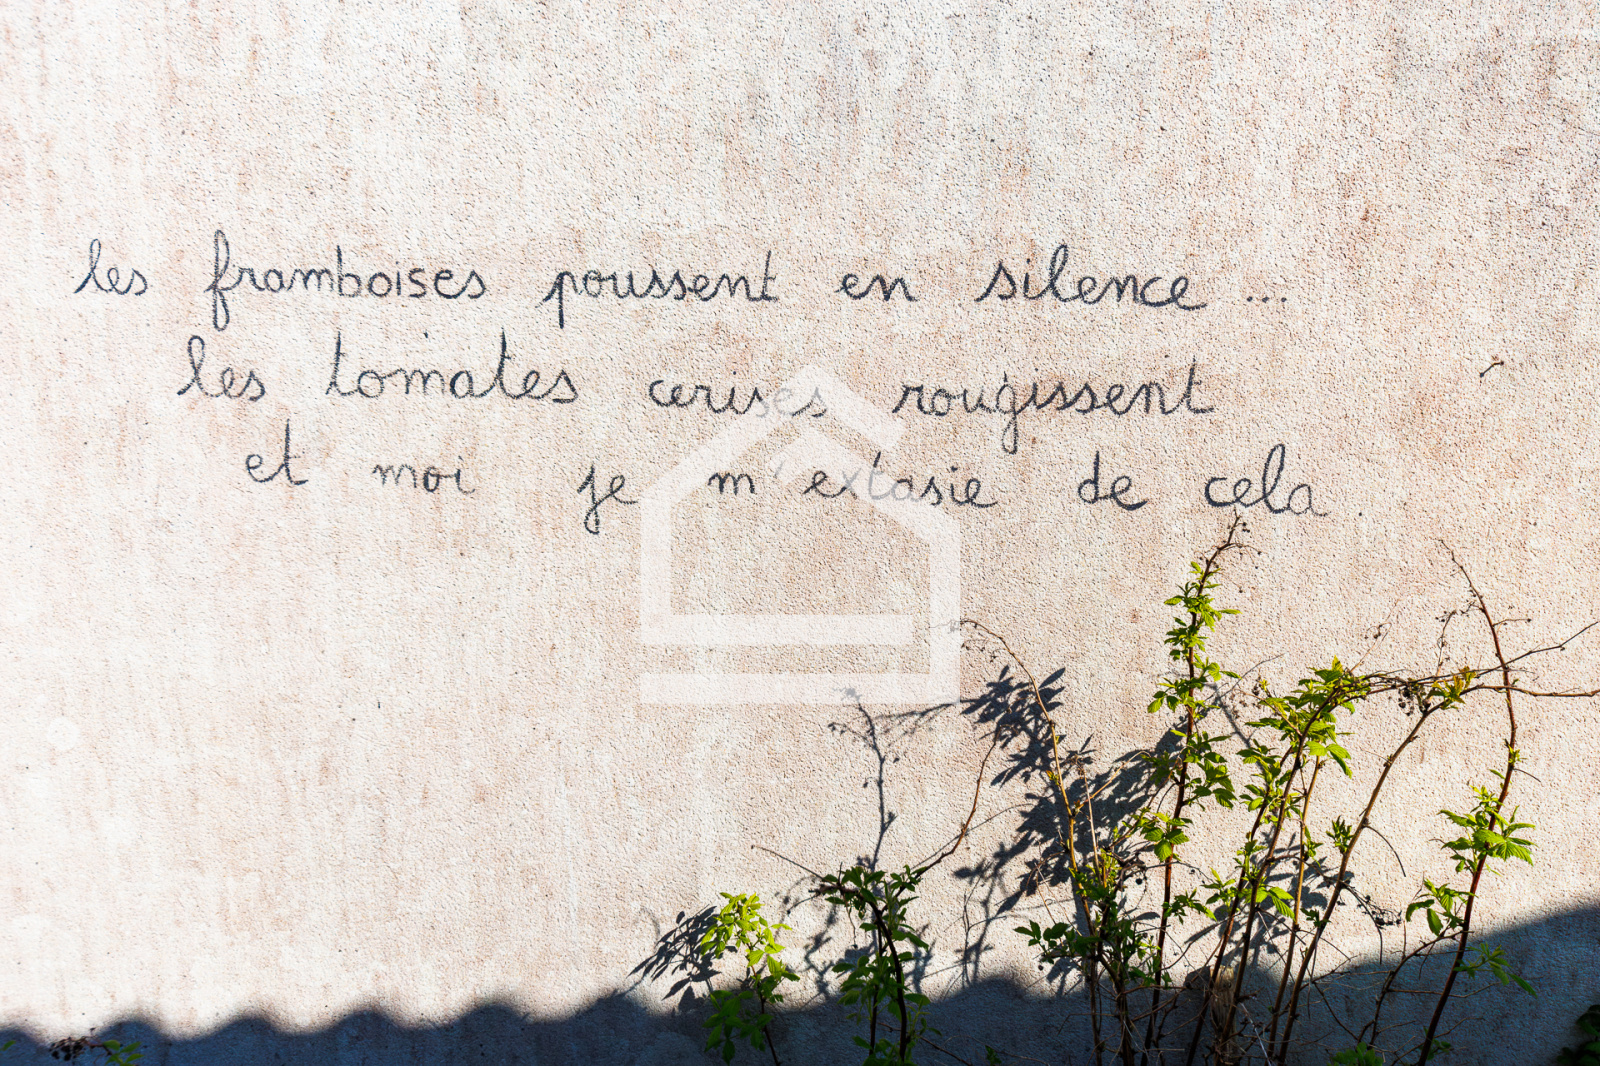 les framboises poussent en silence...
les tomates cerises rougissent
et moi je m'extasie de cela.